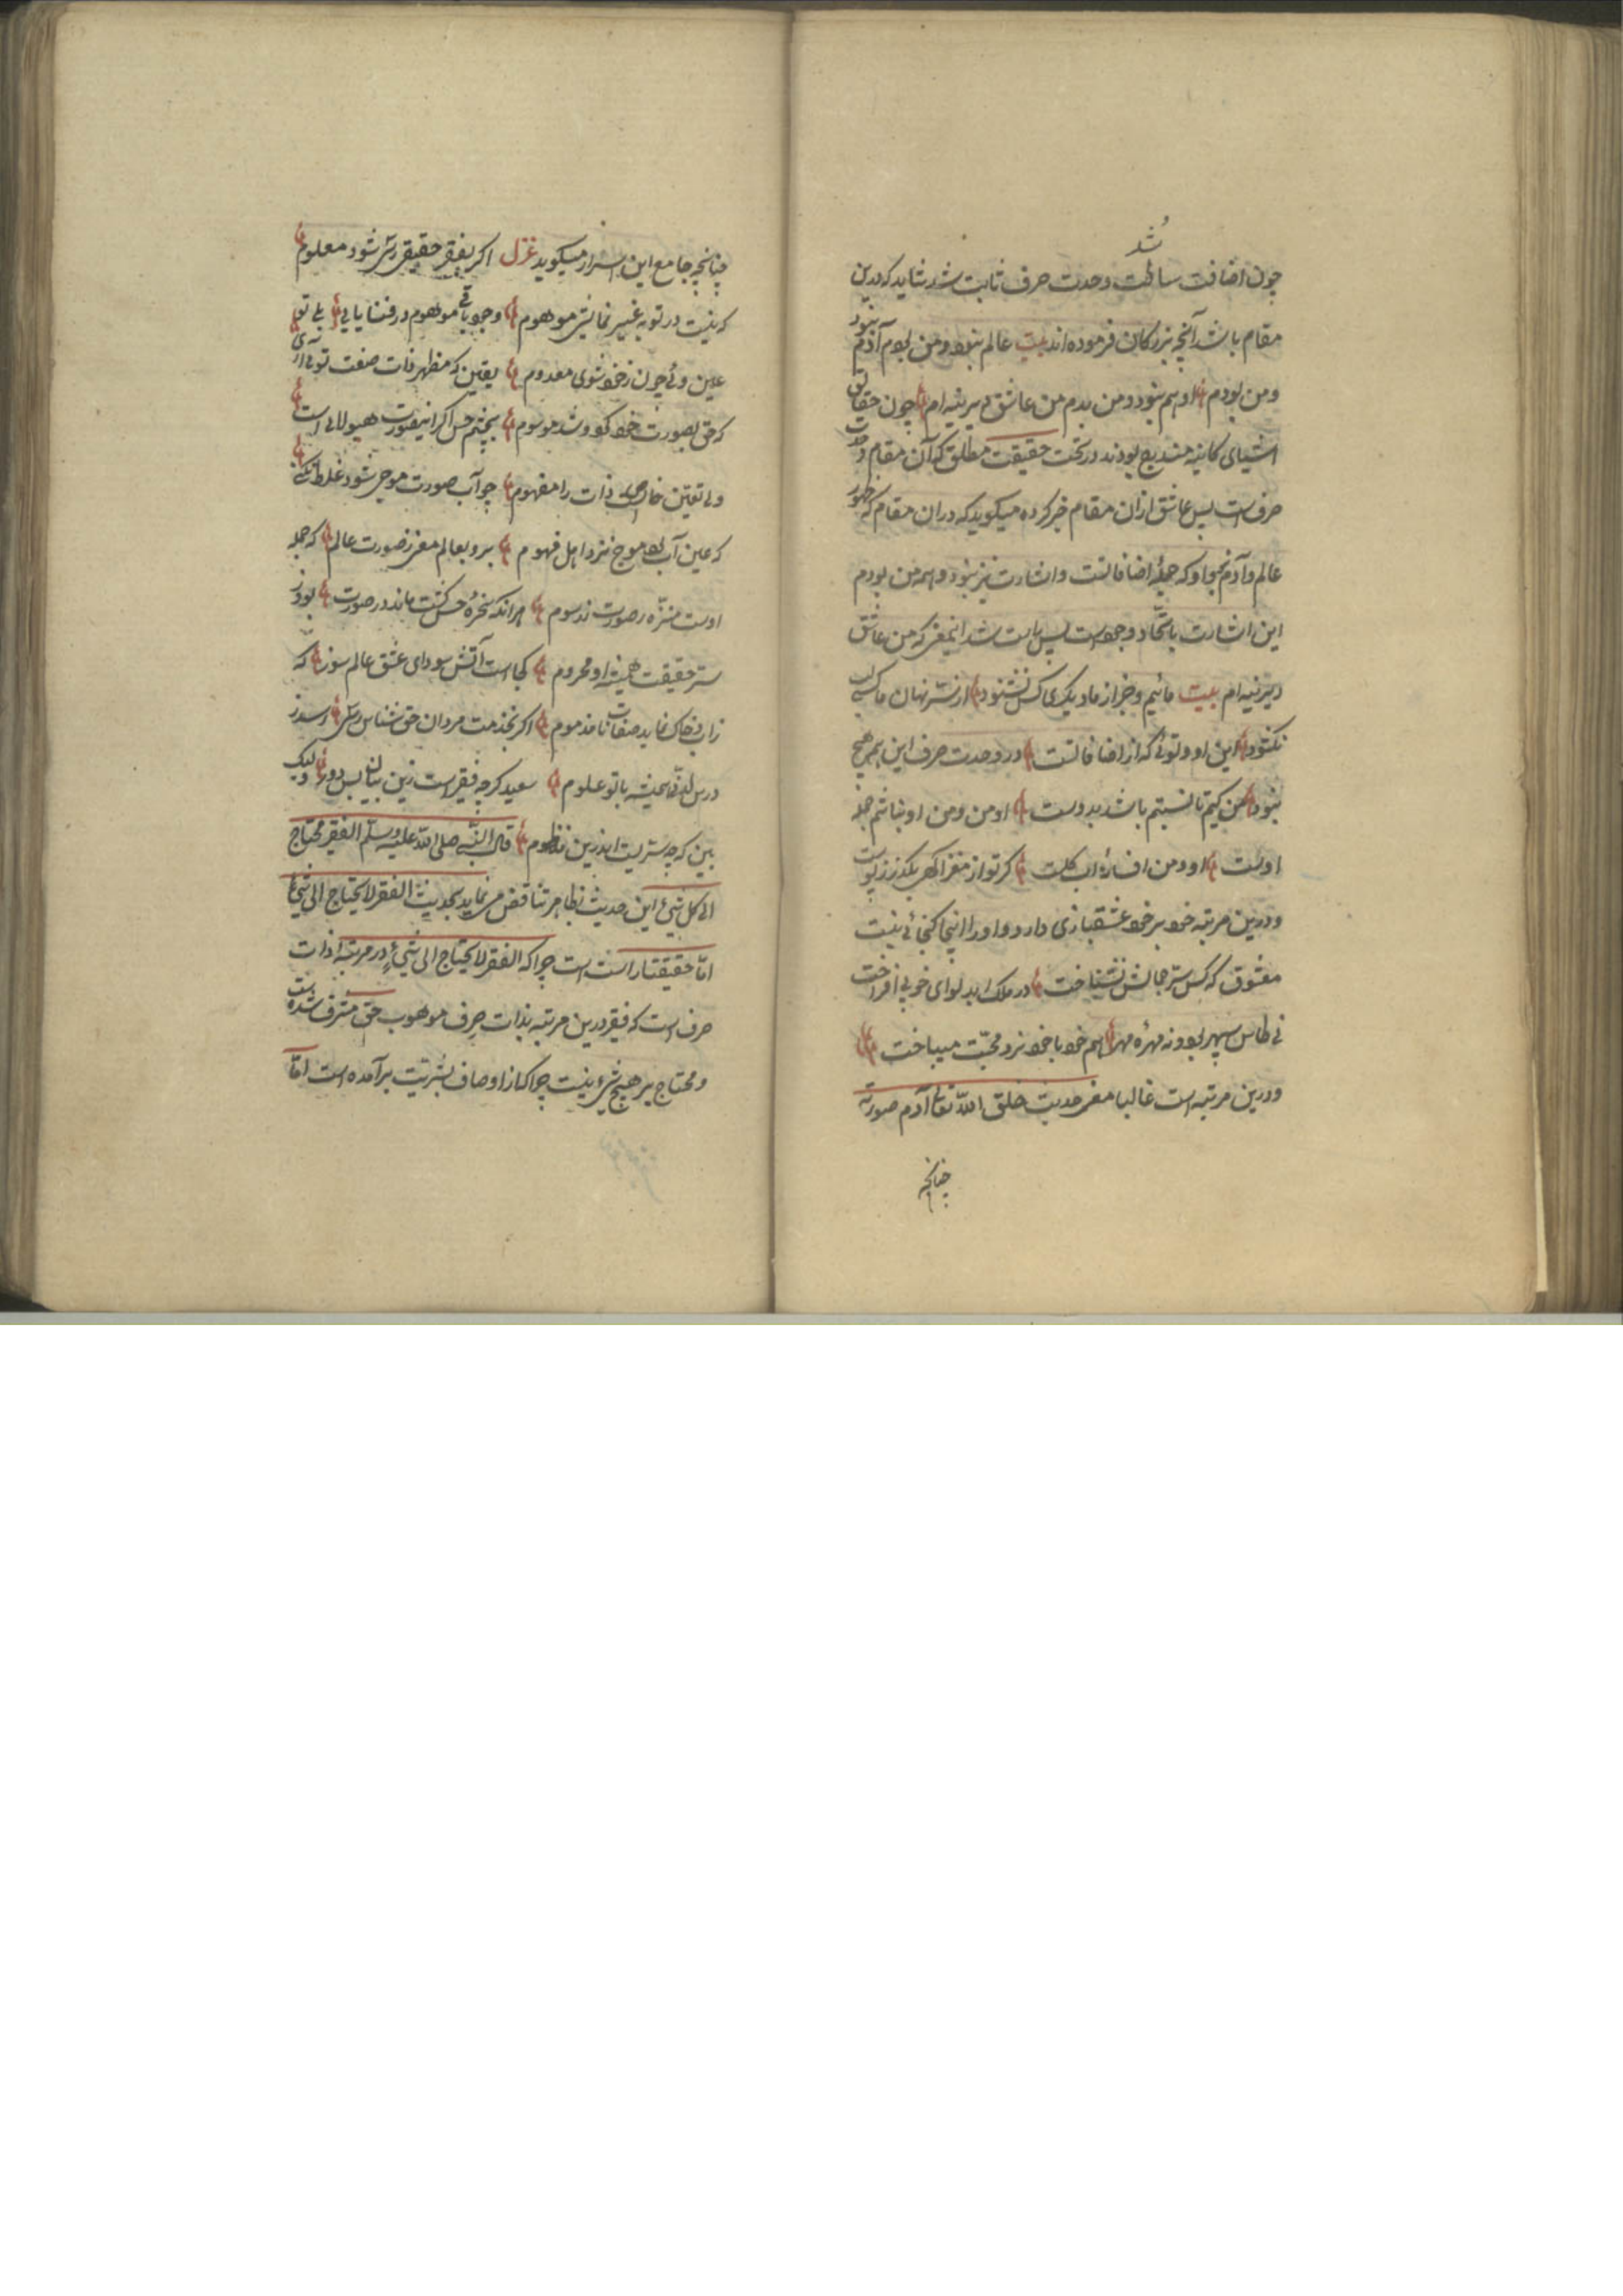 شد
چون اضافت ساقط وحدت صرف ثابت شد شاید که درین
مقام باشد آنچه بزرکان فرموده اند بیت عالم نبود و من بودم آدم نبود
و من بودم او هم نبود و من بدم من عاشق دیرینه ام چون حقایق
اشیای کاینه مندمج بودند در تحت حقیقت مطلق که آن مقام وحدت
صرف است پس عاشق ازان مقام خبر کرده میکوید که دران مقام که ظهور
عالم و آدم نبود و که جملهٔ اضافاتست و اشارت نیز نبود و همه من بودم
این اشارت باتّحاد وجود است پس راست شد اینمعنی که من عاشق
دیرینه ام بیت مائیم و خبر از ما دیکری کس نشنود از سرّ نهان ما کسی
نکشود این او و توئی که از اضافاتست در وحدت صرف این همه هیچ
نبود من کیم تا نسبتم باشد بدوست او من و من او نباشم جمله
اوست او و من افسانهٔ کر تو از مغز آکهی بکذر ز پوست
و درین مرتبه خود بر خود عشقبازی دارد و اورا اینجا کنجائی نیست
معشوق که کس سرّ جمالش نشناخت در ملک ابد لوای خوبی افراخت
نی طاس سپهر بود و نه مهرهٔ مهر هم خود با خود نرد محبّت میباخت
و درین مرتبه است غالبا معنی حدیث خلق اللّه تعالی آدم صورته
چنانچه
چنانچه جامع این اسرار میکوید غزل اکر بفقر حقیقی رسی شود معلوم
که نیست در تو به غیر نمایش موهوم وجود باقی موهوم در فنا یابی بلی تو
عین وئی چون ز خود شوی معدوم یقین که مظهر ذات صفت توئی آری
که حق بصورت خود کرد و شد موسوم بچشم حس اکر اینصورت هیولائی است
ولی تعیّن خاص است ذات را مفهوم چو آب صورت موجی شود غلط نکنی
که عین آب بود موج نزد اهل فهوم برو بعالم معنی ز صورت عالم که جمله
اوست منزّه ز صورت و ز رسوم هرانکه سخرهٔ حس کشت ماند در صورت بود ز
سرّ حقیقت همیشه او محروم کجاست آتش سودای عشق عالم سوز که
زاب و خاک نماید صفات نا مذموم اکر بخدمت مردان حق شناس رسی رسد ز
درس لدنّی همیشه با تو علوم سعید کرچه فقیر است زین بیان بس دور ولیک
ببین که چه سرّیست اندرین منظوم قال النّبی صلی اللّه علیه و سلّم الفقیر محتاج
الی کل شیء این حدیث بظاهر تناقض می نماید بحدیث الفقر لا یحتاج الی شیء
امّا حقیقتا راست است چرا که الفقر لا یحتاج الی شیء در مرتبه ذات
صرف است که فقیر درین مرتبه بذات صرف موهوب حق مشرف شده است
و محتاج بر هیچ شیء نیست چرا که از اوصاف بشریّت برآمده است امّا